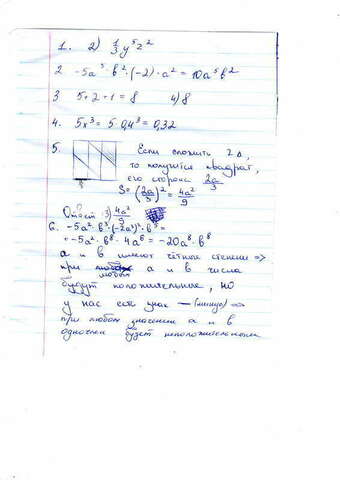 1. 2) 1/3 y⁵z²
2 -5a³·b²·(-2)·a² = 10a⁵b²
3 5+2+1=8 4) 8
4. 5x³ = 5·0,4³ = 0,32
5. Если сложить 2 Δ,
то получится квадрат,
его сторона 2a/3
S=(2a/3)² = 4a²/9
Ответ: 3) 4a²/9
6. -5a²·b³·(-2a³)²·b⁵ =
= -5a²·b⁸·4a⁶ = -20a⁸·b⁸
a и в имеют чётное степени =>
при любом a и в числа
будут положительные, но
у нас есть знак — (минус) =>
при любом значении a и в
одночлен будет неположительным